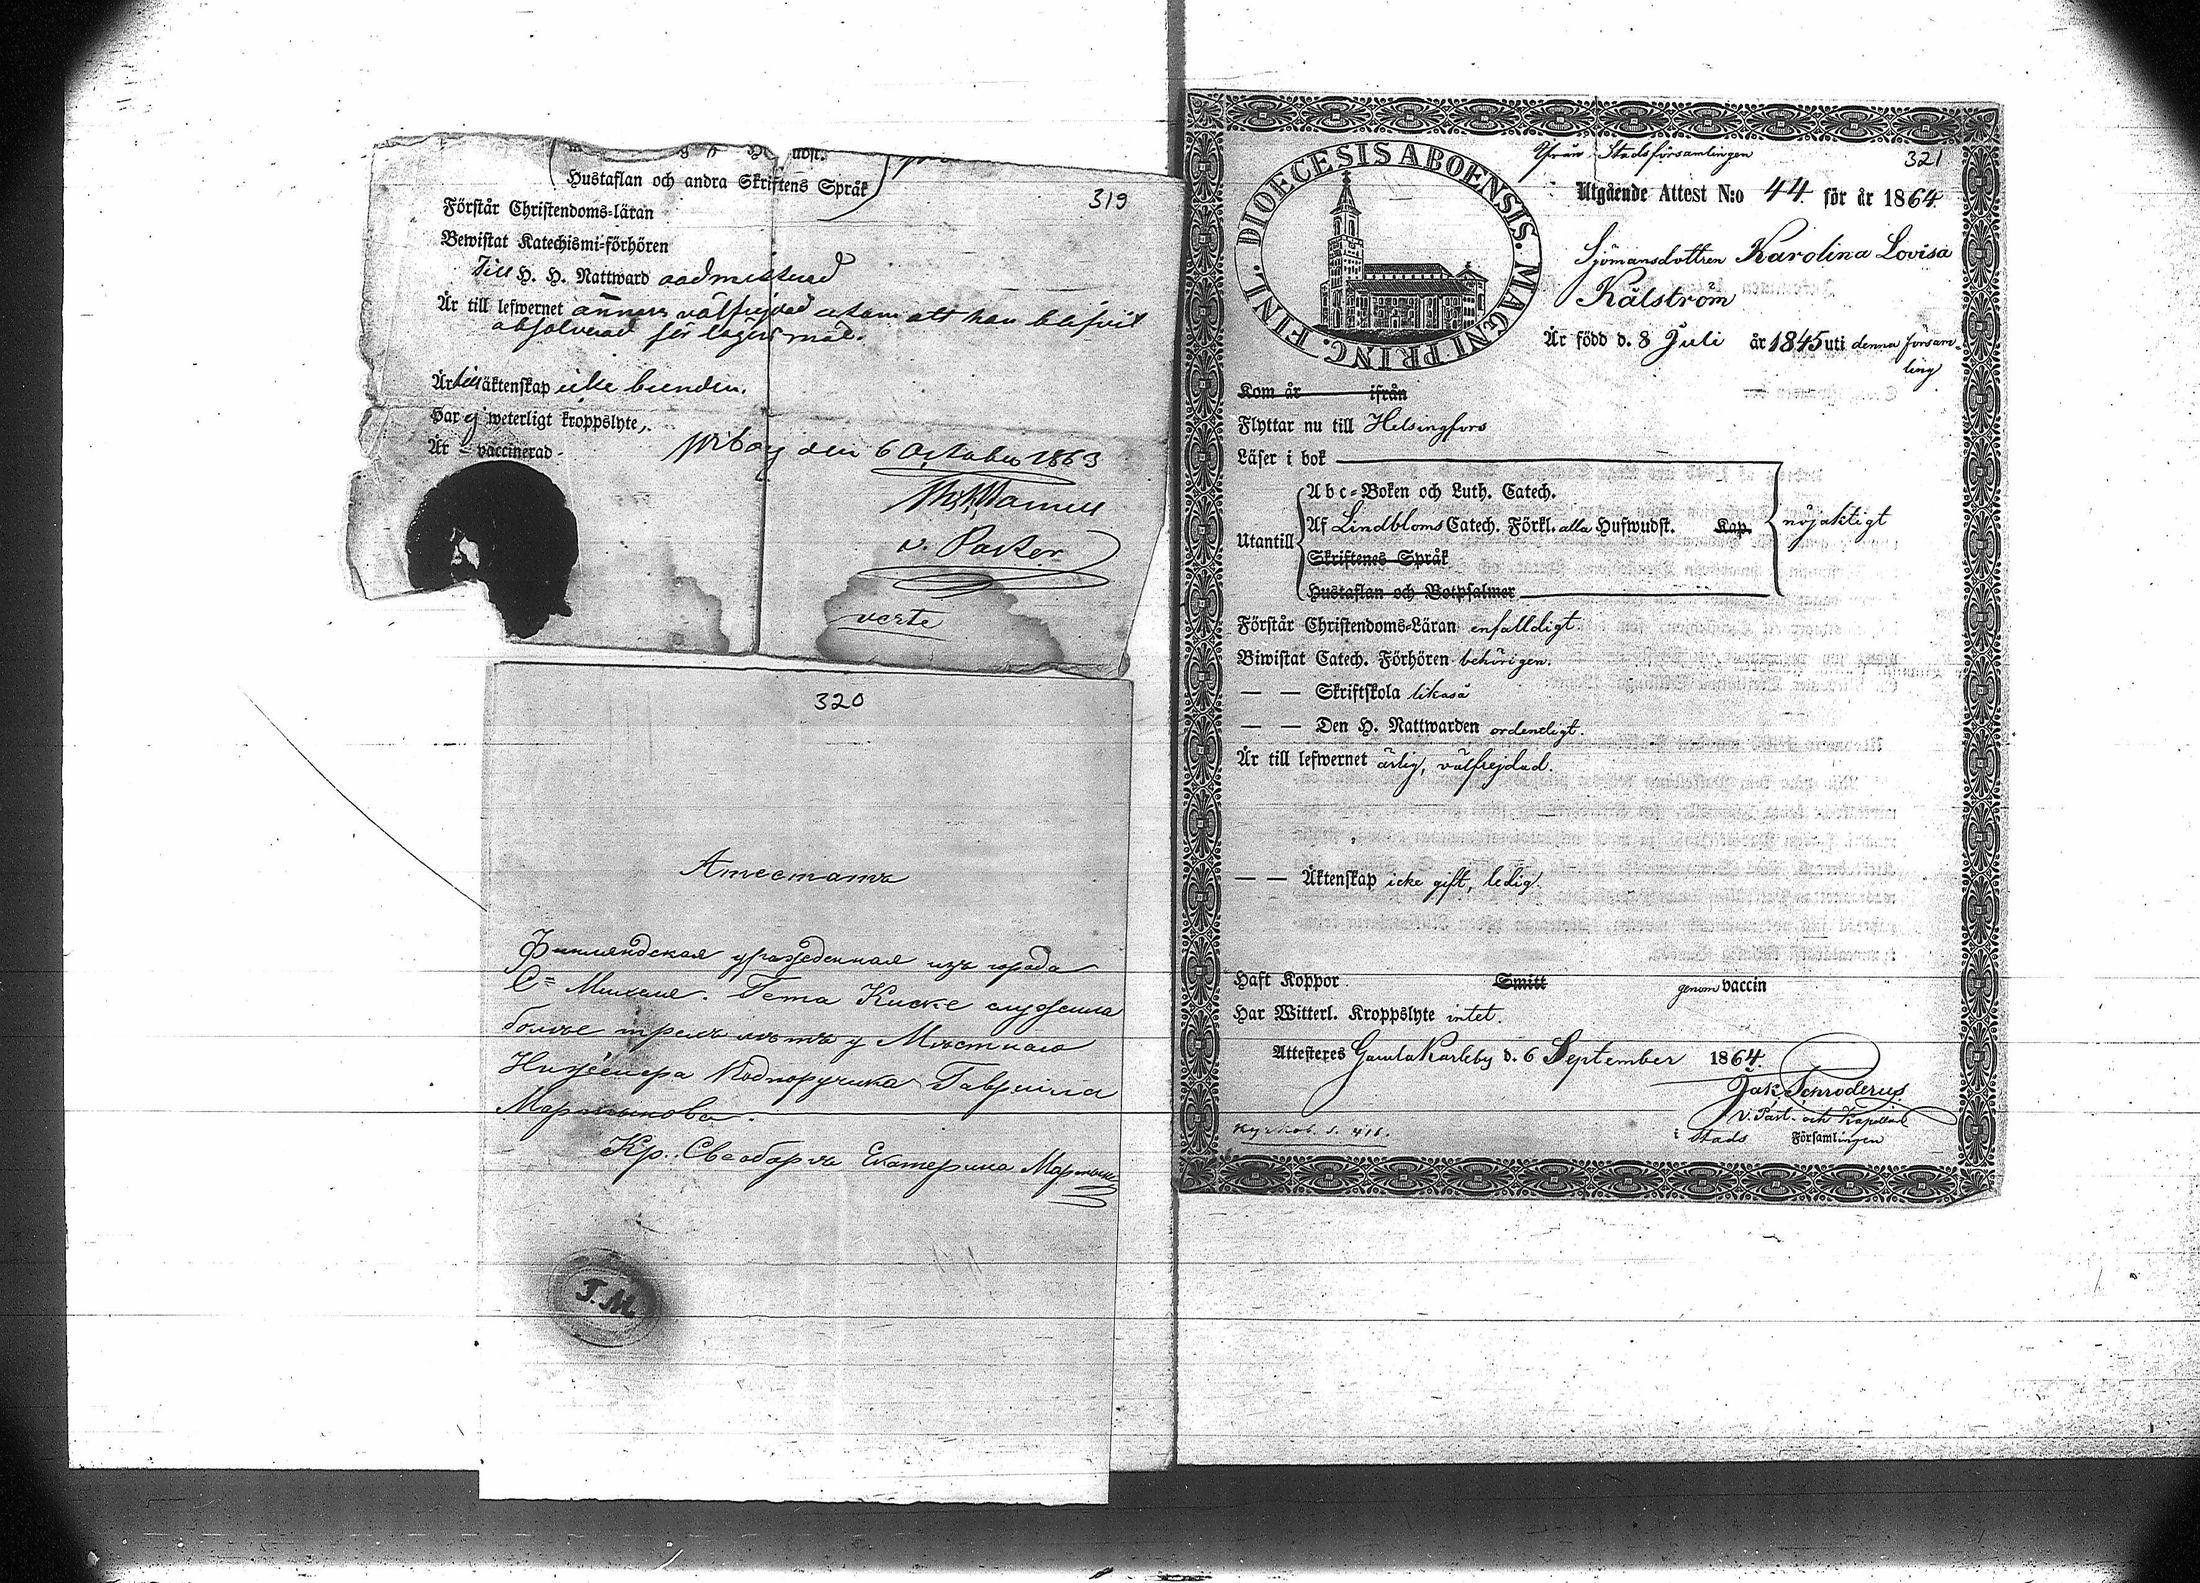 319
Hustaflan och andra Skriftens Språk
Förstår Christendoms-läran
Bewistat Katechismi-förhören
Till H. H. Nattward admitterad
Är till lefwernet annars välfrejdad utom att han blifvit
absolverad för lägersmål.
Är till äktenskap icke bunden.
Har ej weterligt kroppslyte,
Är vaccinerad
Wiborg den 6 October 1863
v. Pastor
verte
320
Атестатъ
Финляндская урожденная изъ города
Сᵗ Михеля. Гета Киске служила
более трехъ летъ у Местнаго
Инженера Подпоручика Гавриила
Мартынова.
Кр. Свеаборгъ Екатерина
Г.М.
321
DIOECESIS ABOENSIS. MAGNI PRINC. FINL.
Ifrån Stadsförsamlingen
Utgående Attest N:o 44 för år 1864
Sjömansdottren Karolina Lovisa
Kälström
Är född d. 8 Juli år 1845 uti denna försam-
ling
Kom år ifrån
Flyttar nu till Helsingfors
Läser i bok
Abc-Boken och Luth. Catech.
Utantill Af Lindbloms Catech. Förkl. alla Hufwudst. Kap. nöjaktigt
Skriftenes Språk
Hustaflan och Botpsalmer
Förstår Christendoms-Läran enfalldigt.
Biwistat Catech. Förhören behörigen.
— — Skriftskola likaså
— — Den H. Nattwarden ordentligt.
Är till lefwernet ärlig, välfrejdad.
— — Äktenskap icke gift, ledig.
Haft Koppor Smitt genom vaccin
Har Witterl. Kroppslyte intet.
Attesteres Gamla Karleby d. 6 September 1864.
Jak. Schroderus
v. Past. och Kapellan
i Stads Församlingen
Kyrkob. s. 416.